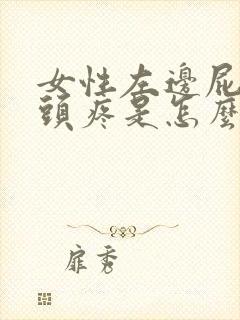 女性左邊屁
頭疼是怎麼
扉秀